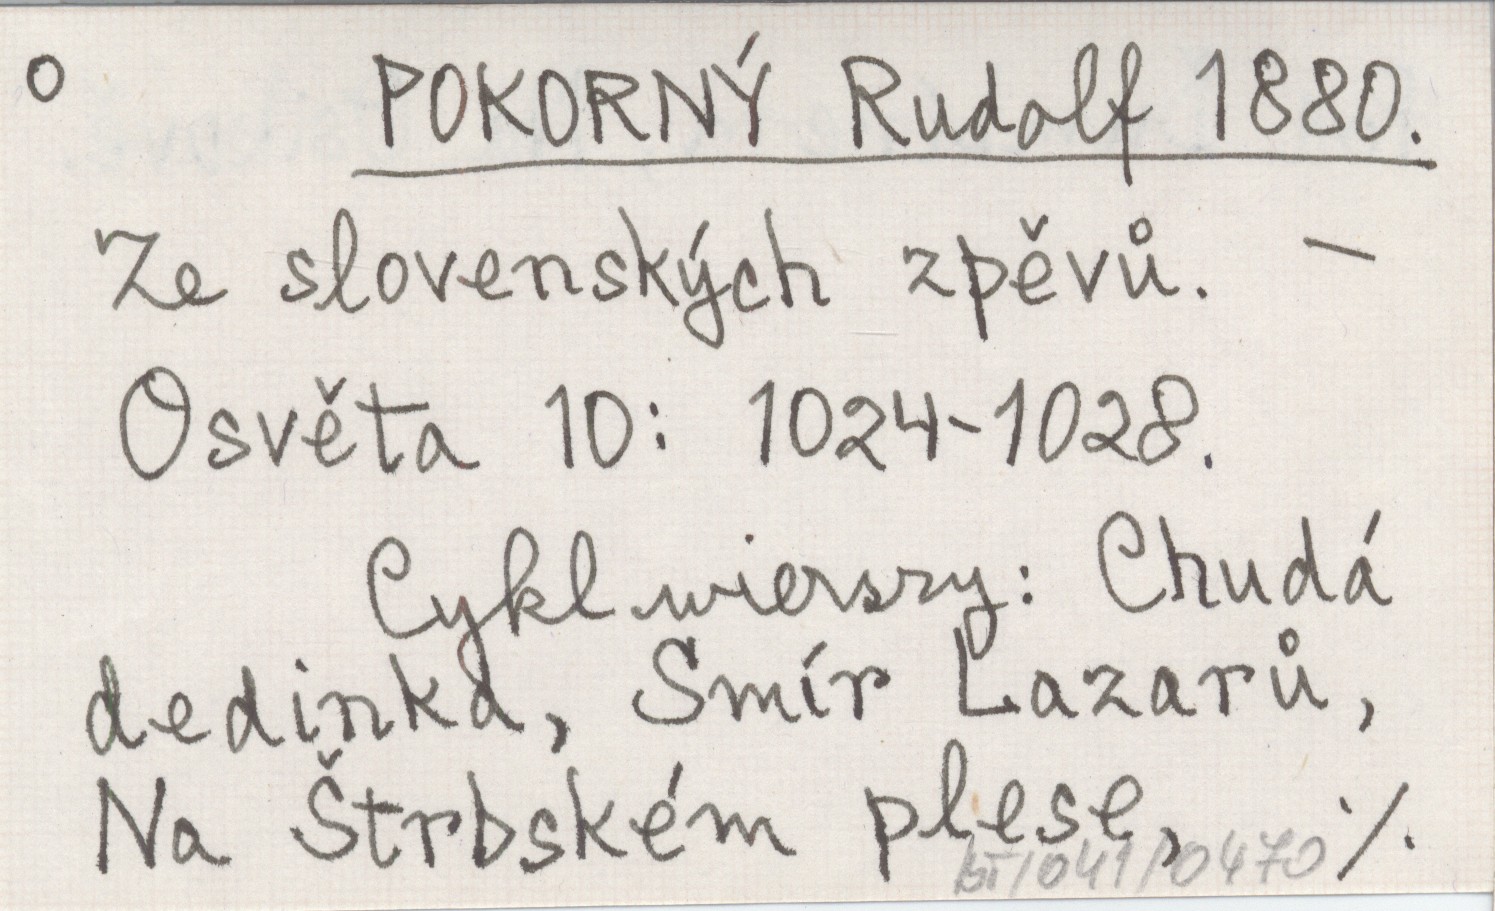 o POKORNÝ Rudolf 1880.
Ze slovenských zpěvů. —
Osvěta 10: 1024-1028.
Cykl wierszy: Chudá
dedinka, Smír Lazarů,
Na Štrbském plese, ·/.
bt/041/0470